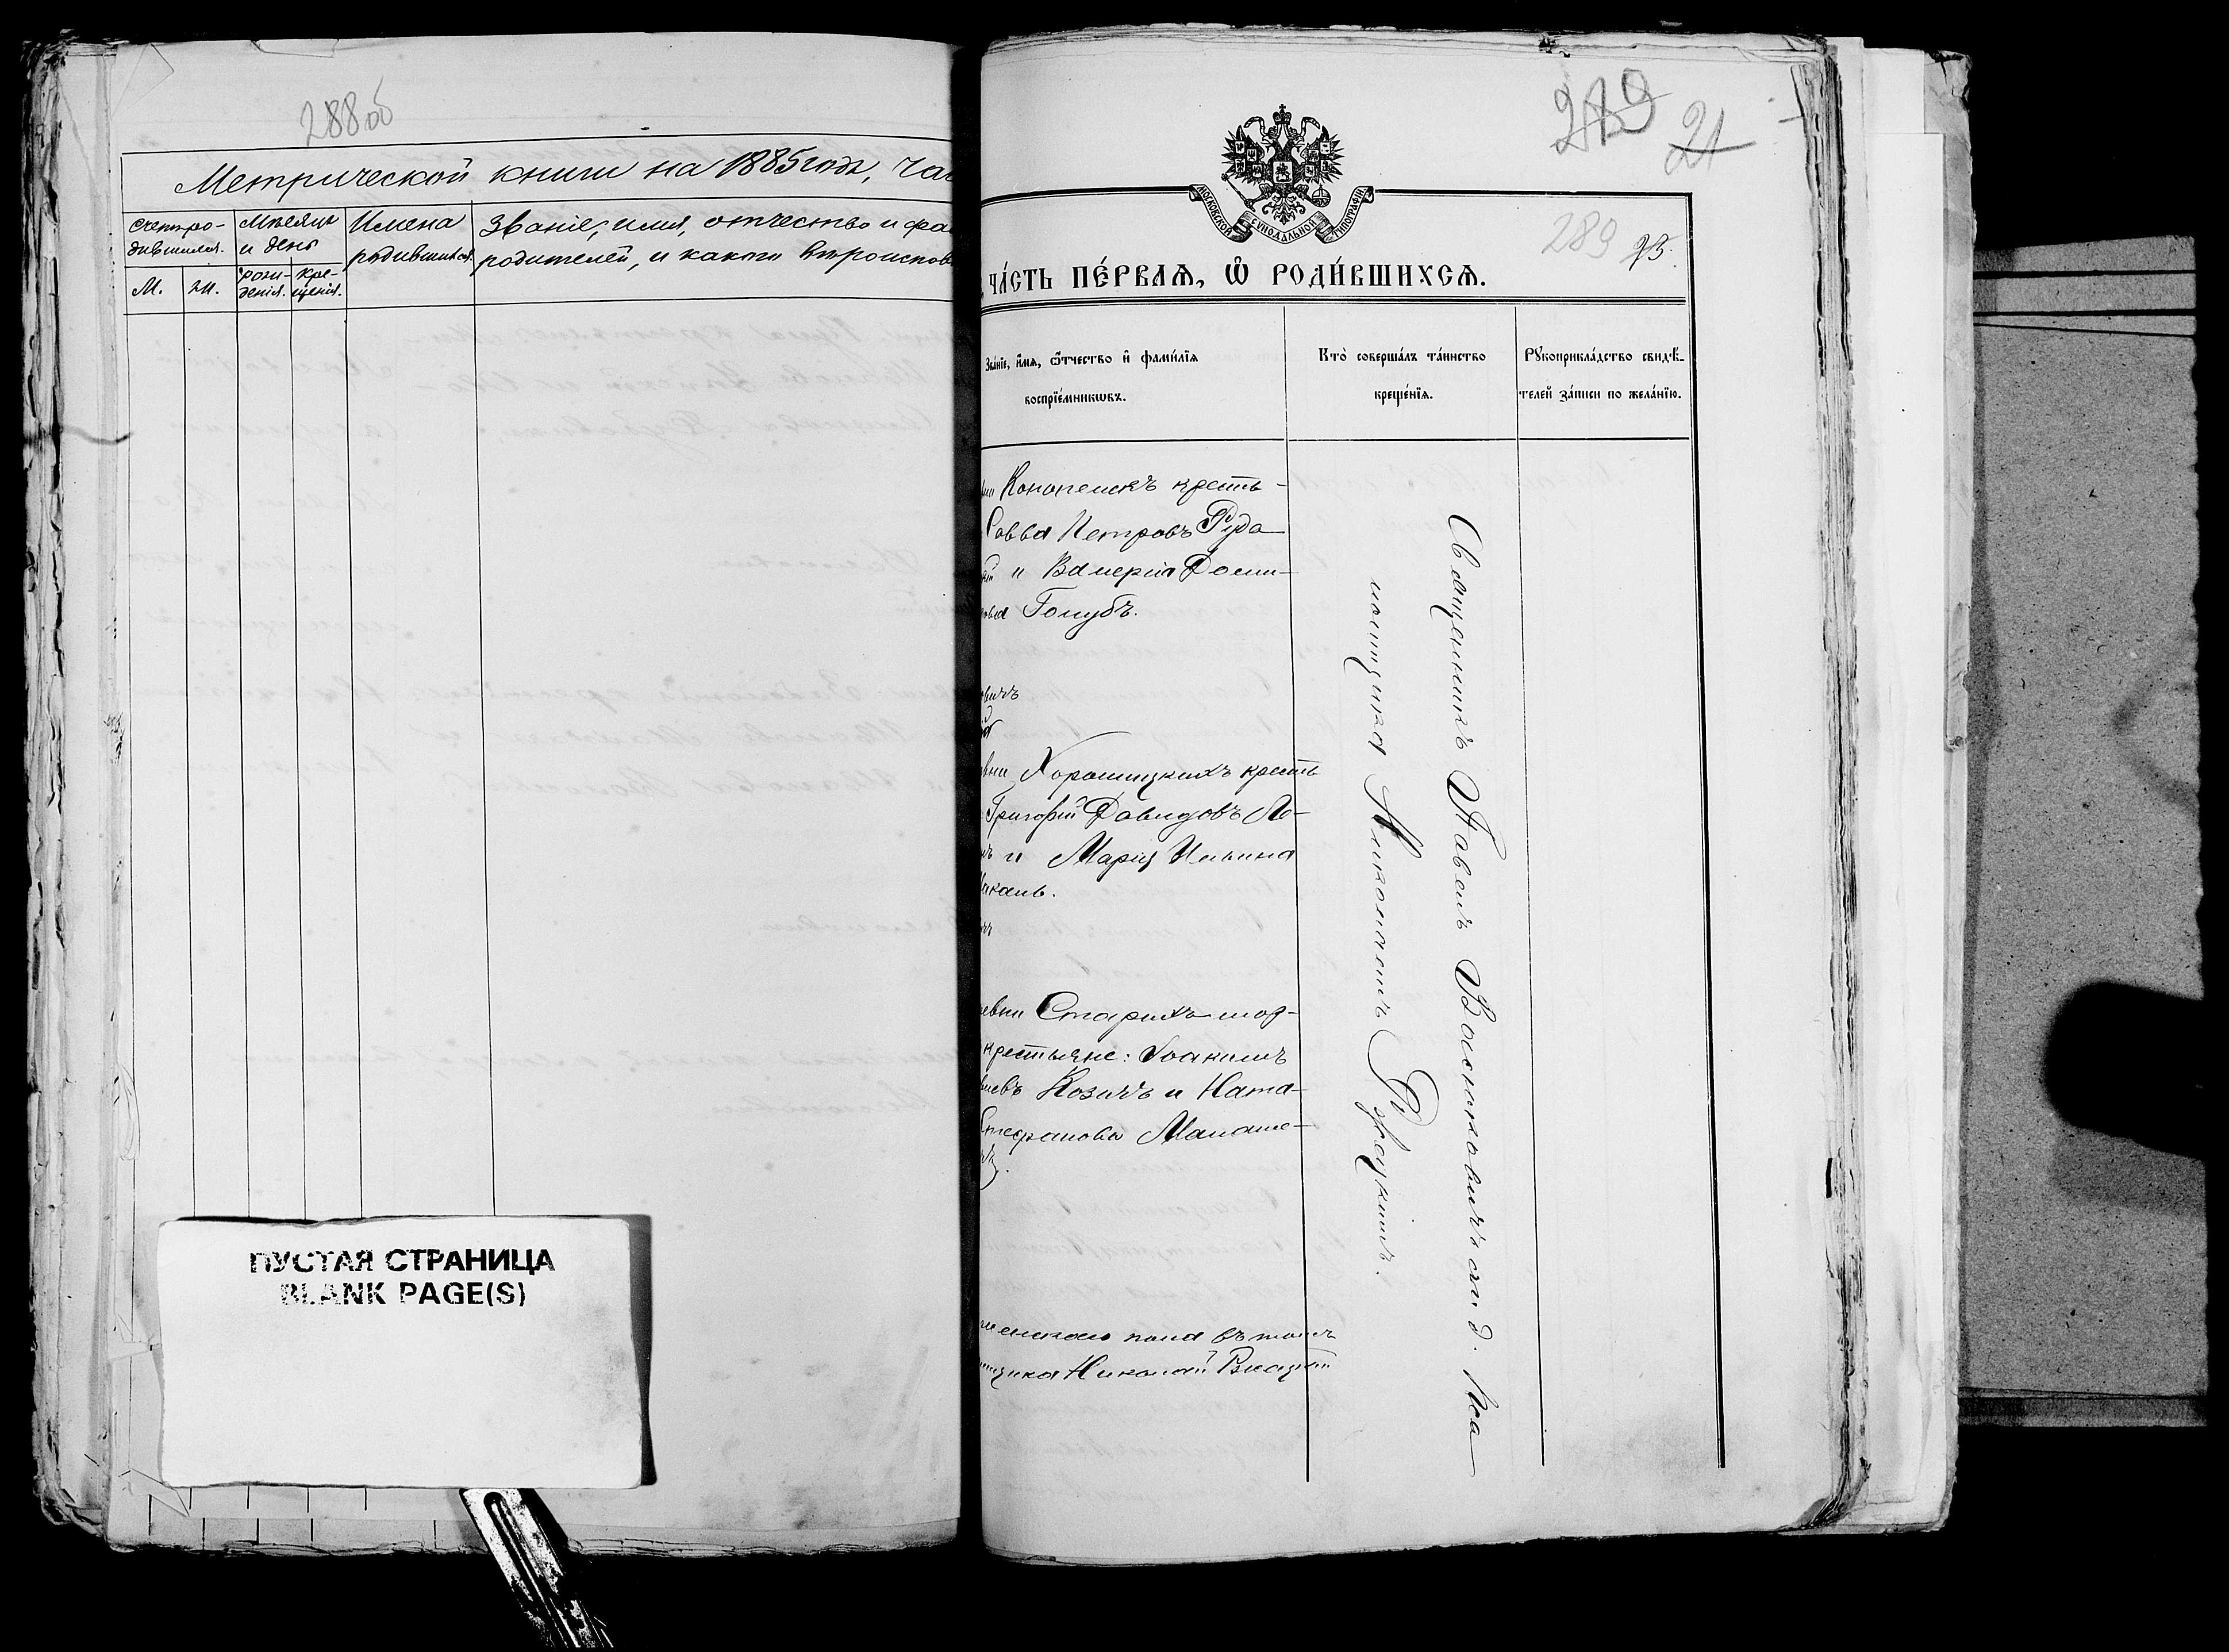 288 об
Метрической книги на 1885 годъ, час
Счетъ ро-
дившихся.
М.
ж.
Мѣсяцъ
и день
рож-
денія.
кре-
щенія.
Имена
родившихся.
Званіе, имя, отчество и фа
родителей, и какого вѣроиспов
ПУСТАЯ СТРАНИЦА
BLANK PAGE(S)
21
289
23.
МОСКОВСКОЙ СѴНОДАЛЬНОЙ ТИПОГРАФІИ
, ЧА́СТЬ ПЕ́РВАѦ, Ѡ҆ РОДИ́ВШИХСѦ.
Зва́нїе, и҆́мѧ, ѻ҆́тчество и҆ фами́лїѧ
воспрїе́мникѡвъ.
Кто̀ соверша́лъ та́инство
креще́нїѧ.
Рꙋкоприкла́дство свидѣ́-
телей за́писи по жела́нїю.
Конопелекъ кресть-
Савва Петровъ Руда
и Валерія Доми-
Голубъ.
овичъ
вни Хорошицкихъ кресть
Григорій Давидовъ Ле-
и Марія Ильина
евни Старихъ мод-
крестьяне: Іоакимъ
Козичъ и Ната-
Стефанова Малаше-
женскаго пола въ томъ
Николай
Священникъ Павелъ Васюковичъ съ и. д. Пса
ломщика Николаемъ Рожецкимъ.